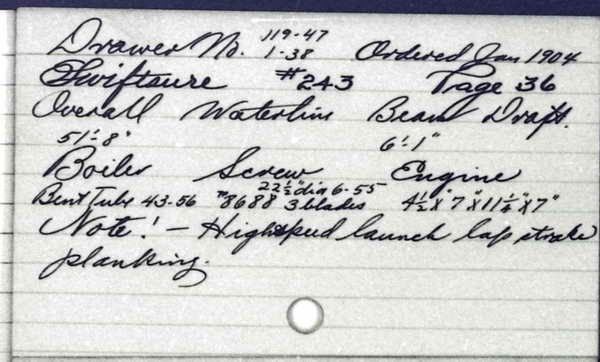 Drawer No. 119-47
1-38 Ordered Jan 1904
Swiftsure #243 Page 36
Overall Waterline Beam Draft.
51'-8" 6'-1"
Boiler Screw Engine
Bent Tube 43-56 #8688 22½" dia 6-55 3 blades 4½"x7"x11¼"x7"
Note! - High speed launch lap strake
planking.